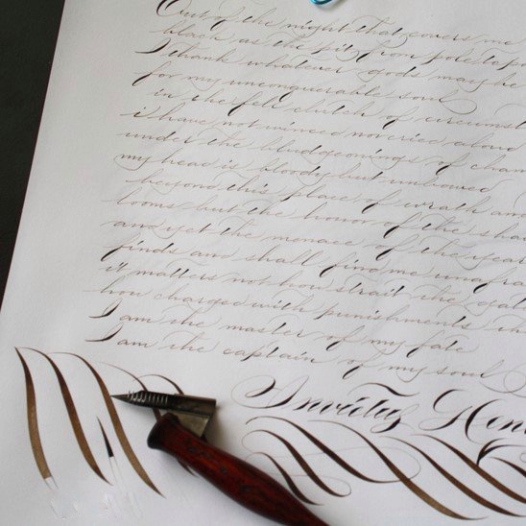 Out of the night that covers me
black as the pit from pole to po
I thank whatever gods may be
for my unconquerable soul
in the fell clutch of circumst
i have not winced nor cried aloud
under the bludgeonings of chan
my head is bloody but unbowed
beyond this place of wrath an
looms but the horror of the sha
and yet the menace of the year
finds and shall find me unafra
it matters not how strait the gat
how charged with punishments th
I am the master of my fate
I am the captain of my soul
Invictus Hen